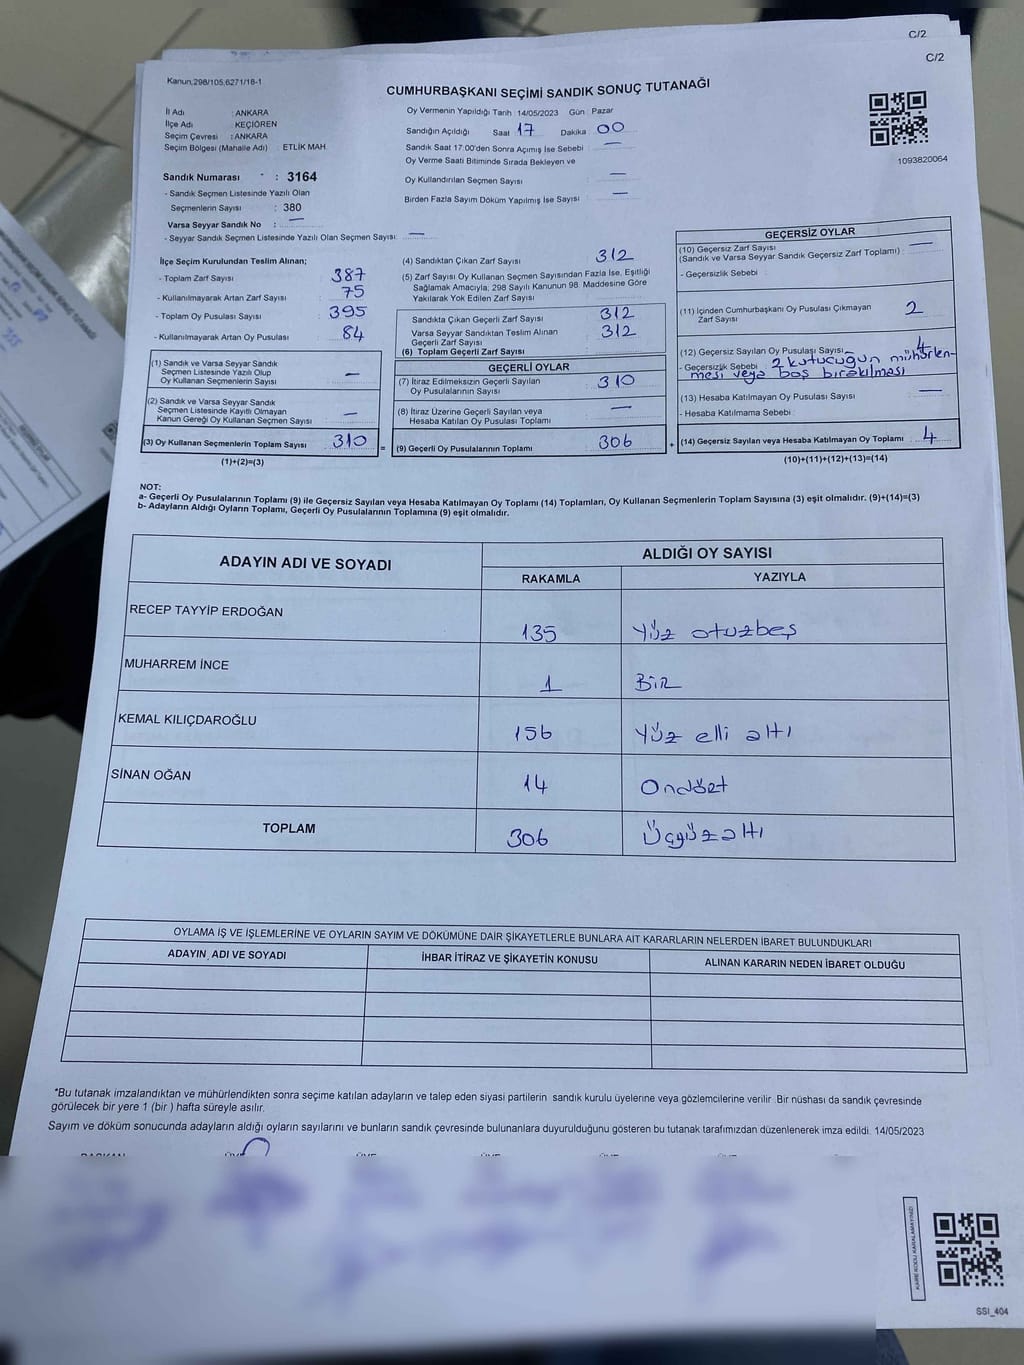 C/2
C/2
Kanun,298/105,6271/18-1
CUMHURBAŞKANI SEÇİMİ SANDIK SONUÇ TUTANAĞI
İl Adı : ANKARA
İlçe Adı : KEÇİÖREN
Seçim Çevresi : ANKARA
Seçim Bölgesi (Mahalle Adı) : ETLİK MAH.
Sandık Numarası : 3164
- Sandık Seçmen Listesinde Yazılı Olan
Seçmenlerin Sayısı : 380
Varsa Seyyar Sandık No : —
- Seyyar Sandık Seçmen Listesinde Yazılı Olan Seçmen Sayısı: —
Oy Vermenin Yapıldığı Tarih :14/05/2023 Gün : Pazar
Sandığın Açıldığı Saat 17 Dakika 00
Sandık Saat 17:00'den Sonra Açımış İse Sebebi : —
Oy Verme Saati Bitiminde Sırada Bekleyen ve
Oy Kullandırılan Seçmen Sayısı : —
Birden Fazla Sayım Döküm Yapılmış İse Sayısı : —
1093820064
İlçe Seçim Kurulundan Teslim Alınan;
- Toplam Zarf Sayısı : 387
- Kullanılmayarak Artan Zarf Sayısı : 75
- Toplam Oy Pusulası Sayısı : 395
- Kullanılmayarak Artan Oy Pusulası : 84
(1) Sandık ve Varsa Seyyar Sandık
Seçmen Listesinde Yazılı Olup
Oy Kullanan Seçmenlerin Sayısı : —
(2) Sandık ve Varsa Seyyar Sandık
Seçmen Listesinde Kayıtlı Olmayan
Kanun Gereği Oy Kullanan Seçmen Sayısı : —
(3) Oy Kullanan Seçmenlerin Toplam Sayısı : 310
(1)+(2)=(3)
(4) Sandıktan Çıkan Zarf Sayısı : 312
(5) Zarf Sayısı Oy Kullanan Seçmen Sayısından Fazla İse, Eşitliği
Sağlamak Amacıyla, 298 Sayılı Kanunun 98. Maddesine Göre
Yakılarak Yok Edilen Zarf Sayısı :
Sandıkta Çıkan Geçerli Zarf Sayısı : 312
Varsa Seyyar Sandıktan Teslim Alınan
Geçerli Zarf Sayısı : 312
(6) Toplam Geçerli Zarf Sayısı
GEÇERLİ OYLAR
(7) İtiraz Edilmeksizin Geçerli Sayılan
Oy Pusulalarının Sayısı : 310
(8) İtiraz Üzerine Geçerli Sayılan veya
Hesaba Katılan Oy Pusulası Toplamı : —
= (9) Geçerli Oy Pusulalarının Toplamı : 306 +
GEÇERSİZ OYLAR
(10) Geçersiz Zarf Sayısı
(Sandıktan ve Varsa Seyyar Sandık Geçersiz Zarf Toplamı) : —
- Geçersizlik Sebebi :
(11) İçinden Cumhurbaşkanı Oy Pusulası Çıkmayan
Zarf Sayısı : 2
(12) Geçersiz Sayılan Oy Pusulası Sayısı : 4
- Geçersizlik Sebebi : 2 kutucuğun mühürlen-
mesi veya boş bırakılması
(13) Hesaba Katılmayan Oy Pusulası Sayısı : —
- Hesaba Katılmama Sebebi :
(14) Geçersiz Sayılan veya Hesaba Katılmayan Oy Toplamı : 4
(10)+(11)+(12)+(13)=(14)
NOT:
a- Geçerli Oy Pusulalarının Toplamı (9) ile Geçersiz Sayılan veya Hesaba Katılmayan Oy Toplamı (14) Toplamları, Oy Kullanan Seçmenlerin Toplam Sayısına (3) eşit olmalıdır. (9)+(14)=(3)
b- Adayların Aldığı Oyların Toplamı, Geçerli Oy Pusulalarının Toplamına (9) eşit olmalıdır.
ADAYIN ADI VE SOYADI ALDIĞI OY SAYISI
RAKAMLA YAZIYLA
RECEP TAYYİP ERDOĞAN 135 Yüz otuzbeş
MUHARREM İNCE 1 Bir
KEMAL KILIÇDAROĞLU 156 Yüz elli altı
SİNAN OĞAN 14 Ondört
TOPLAM 306 Üçyüzaltı
OYLAMA İŞ VE İŞLEMLERİNE VE OYLARIN SAYIM VE DÖKÜMÜNE DAİR ŞİKAYETLERLE BUNLARA AİT KARARLARIN NELERDEN İBARET BULUNDUKLARI
ADAYIN ADI VE SOYADI İHBAR İTİRAZ VE ŞİKAYETİN KONUSU ALINAN KARARIN NEDEN İBARET OLDUĞU
*Bu tutanak imzalandıktan ve mühürlendikten sonra seçime katılan adayların ve talep eden siyasi partilerin sandık kurulu üyelerine veya gözlemcilerine verilir. Bir nüshası da sandık çevresinde
görülecek bir yere 1 (bir ) hafta süreyle asılır.
Sayım ve döküm sonucunda adayların aldığı oyların sayılarını ve bunların sandık çevresinde bulunanlara duyurulduğunu gösteren bu tutanak tarafımızdan düzenlenerek imza edildi. 14/05/2023
KARE KODU KARALAMAYINIZ!
SSI_404